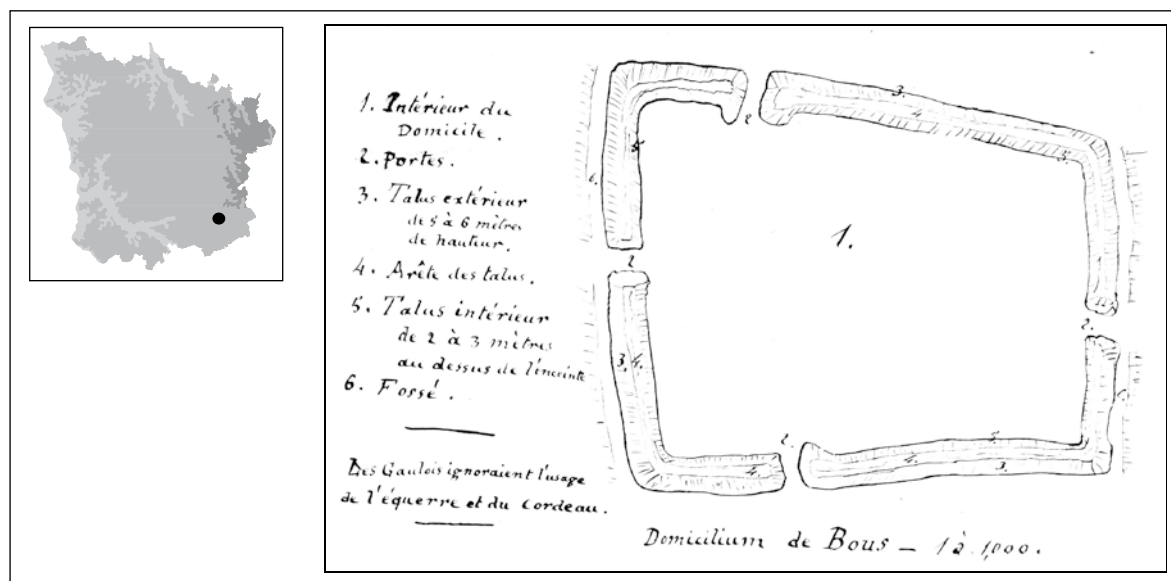 1. Intérieur du
Domicile.
2. Portes.
3. Talus extérieur
de 5 à 6 mètres
de hauteur.
4. Arête des talus.
5. Talus intérieur
de 2 à 3 mètres
au dessus de l'enceinte
6. Fossé.
Les Gaulois ignoraient l'usage
de l'équerre et du cordeau.
2
3.
4.
5.
5
6.
1.
2
2.
3.
4.
2.
5.
4.
3.
4.
Domicilium de Bous — 1 à 1,000.